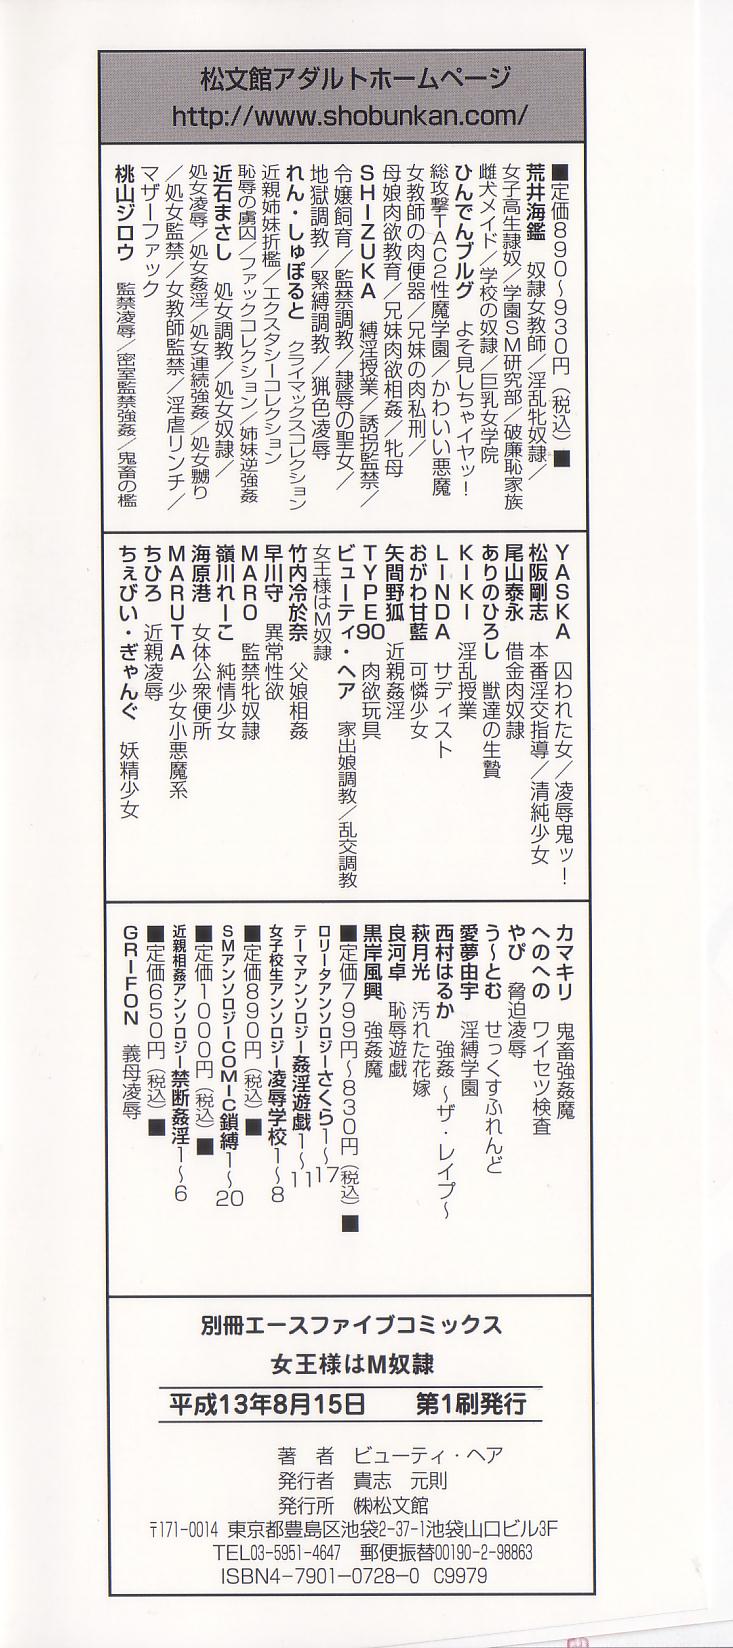 松文館アダルトホームページ
http://www.shobunkan.com/
■定価890〜930円（税込）■
荒井海鑑　奴隷女教師／淫乱牝奴隷／
女子高生隷奴／学園SM研究部／破廉恥家族
雌犬メイド／学校の奴隷／巨乳女学院
ひんでんブルグ　よそ見しちゃイヤッ！
総攻撃TAC2性魔学園／かわいい悪魔
女教師の肉便器／兄妹の肉私刑／
母娘肉欲教育／兄妹肉欲相姦／牝母
SHIZUKA　縛淫授業／誘拐監禁／
令嬢飼育／監禁調教／隷辱の聖女／
地獄調教／緊縛調教／猟色凌辱
れん・しゅぽると　クライマックスコレクション
近親姉妹折檻／エクスタシーコレクション
恥辱の虜囚／ファックコレクション／姉妹逆強姦
近石まさし　処女調教／処女奴隷／
処女凌辱／処女姦淫／処女連続強姦／処女嬲り
／処女監禁／女教師監禁／淫虐リンチ／
マザーファック
桃山ジロウ　監禁凌辱／密室監禁強姦／鬼畜の檻
YASKA　囚われた女／凌辱鬼ッ！
松阪剛志　本番淫交指導／清純少女
尾山泰永　借金肉奴隷
ありのひろし　獣達の生贄
KIKI　淫乱授業
LINDA　サディスト
おがわ甘藍　可憐少女
矢間野狐　近親姦淫
TYPE90　肉欲玩具
ビューティ・ヘア　家出娘調教／乱交調教
女王様はM奴隷
竹内冷於奈　父娘相姦
早川守　異常性欲
MARO　監禁牝奴隷
嶺川れーこ　純情少女
海原港　女体公衆便所
MARUTA　少女小悪魔系
ちひろ　近親凌辱
ちぇびい・ぎゃんぐ　妖精少女
カマキリ　鬼畜強姦魔
へのへの　ワイセツ検査
やぴ　脅迫凌辱
う〜とむ　せっくすふれんど
愛夢由宇　淫縛学園
西村はるか　強姦〜ザ・レイプ〜
萩月光　汚れた花嫁
良河卓　恥辱遊戯
黒岸風興　強姦魔
■定価799円〜830円（税込）■
ロリータアンソロジーさくら1〜17
テーマアンソロジー姦淫遊戯1〜11
女子校生アンソロジー凌辱学校1〜8
■定価890円（税込）■
SMアンソロジーCOMIC鎖縛1〜20
■定価1000円（税込）■
近親相姦アンソロジー禁断姦淫1〜6
■定価650円（税込）■
GRIFON　義母凌辱
別冊エースファイブコミックス
女王様はM奴隷
平成13年8月15日　第1刷発行
著　者　ビューティ・ヘア
発行者　貴志　元則
発行所　㈱松文館
〒171-0014 東京都豊島区池袋2-37-1池袋山口ビル3F
TEL03-5951-4647　郵便振替00190-2-98863
ISBN4-7901-0728-0 C9979